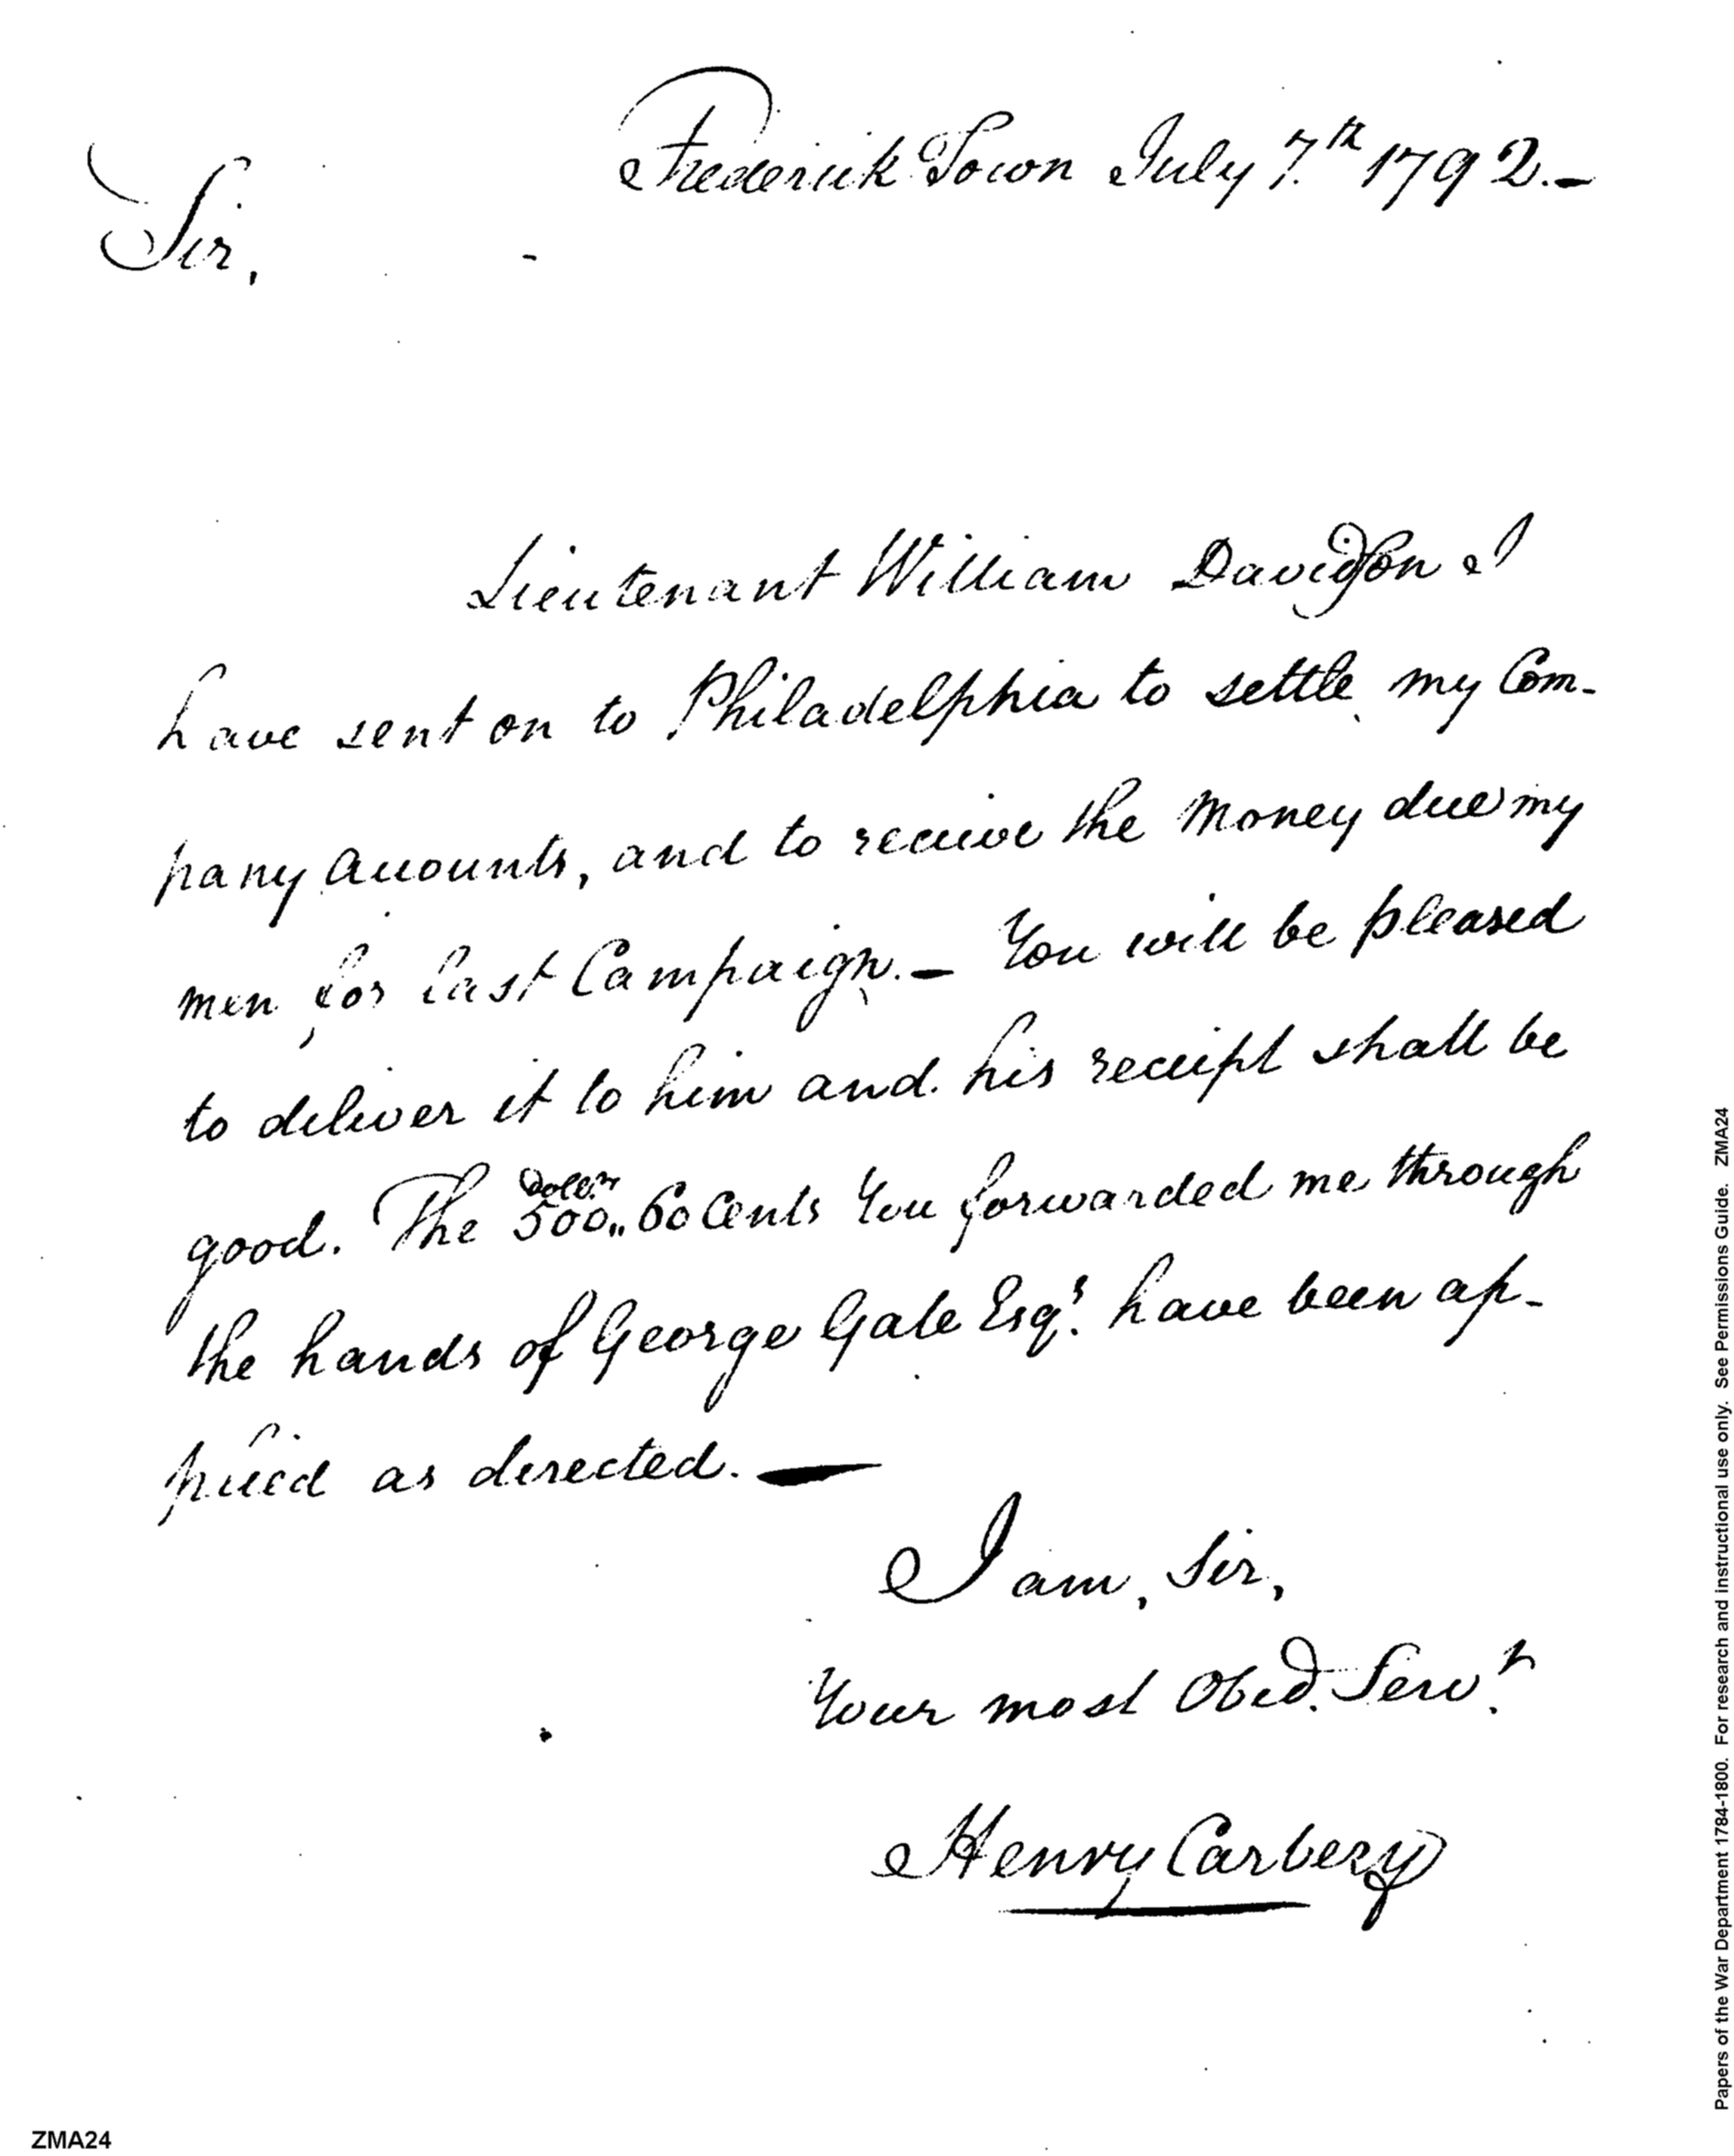 Frederick Town July 7.th 1792.—
Sir,
Lieutenant William Davidson I
have sent on to Philadelphia to settle my Com-
pany Accounts, and to receive the Money due my
men for last Campaign.— You will be pleased
to deliver it to him and his receipt shall be
good. The 500,, Dollrs 60 Cents You forwarded me through
the hands of George Gale Esqr. have been ap-
plied as directed.—
I am, Sir,
Your most Obed. Servt.
Henry Carbery
Papers of the War Department 1784-1800. For research and instructional use only. See Permissions Guide. ZMA24
ZMA24